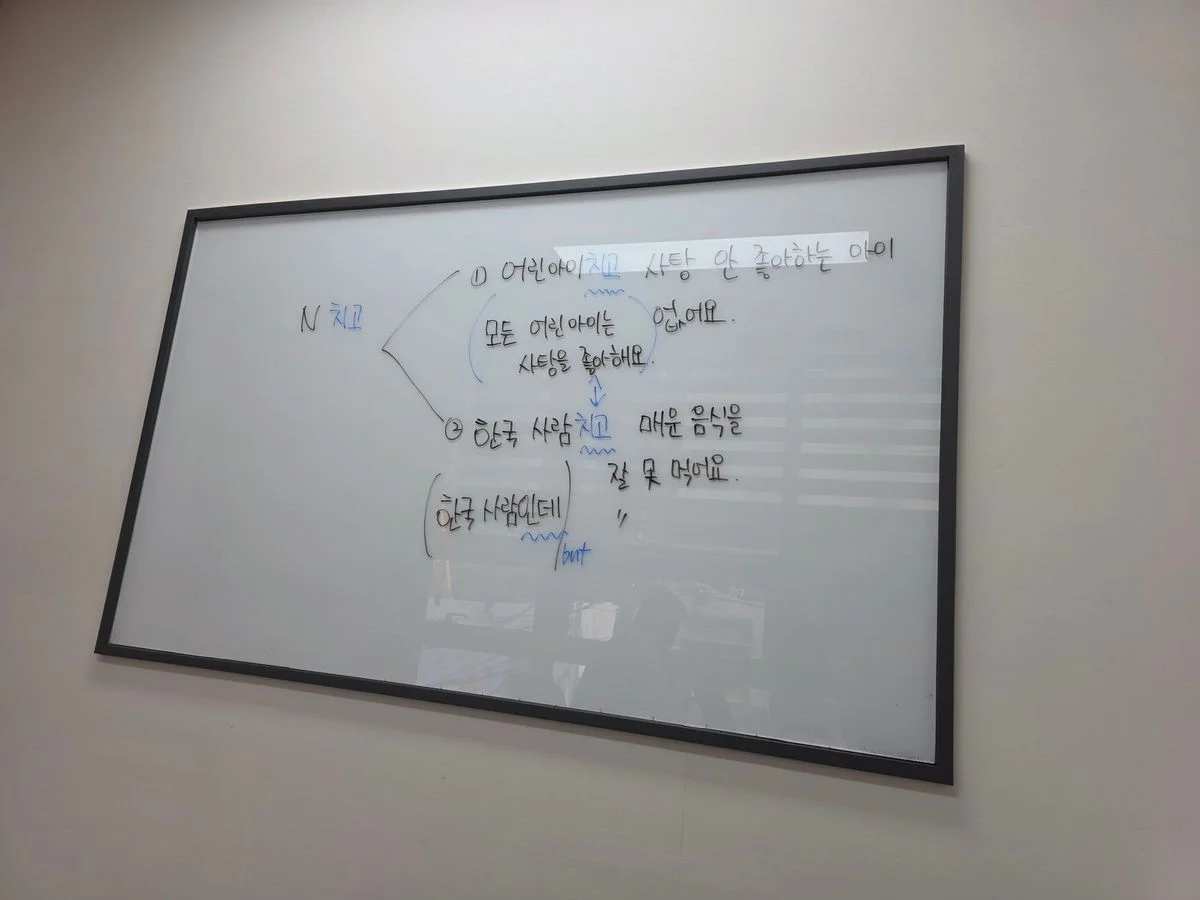 N 치고
① 어린아이치고 사탕 안 좋아하는 아이
없어요.
(모든 어린아이는
사탕을 좋아해요.)
↕
② 한국 사람치고 매운 음식을
잘 못 먹어요.
(한국 사람인데) 〃
but